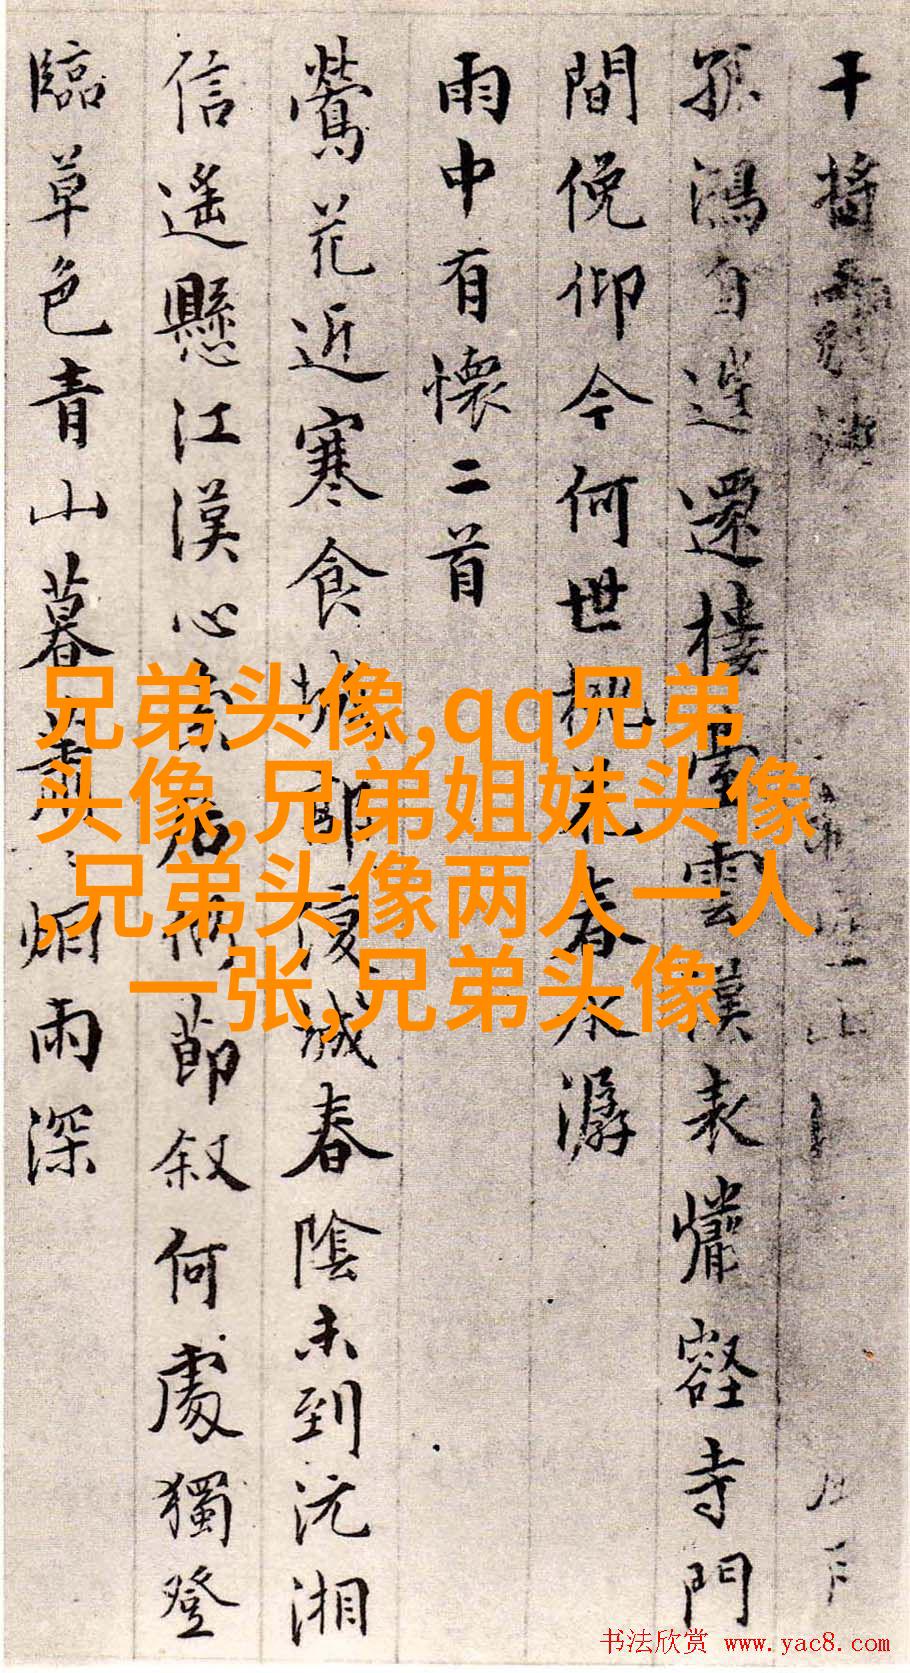 干將
孤鴻自遼還樓室雲漢表
壑寺門
間俛仰今何世桃花春水潺
雨中有懷二首
鶯花近寒食城郭復城春陰未到沅湘
信遙懸江漢心 節叙何處獨登
臨草色青山暮 烟雨深
兄弟头像,qq兄弟
头像,兄弟姐妹头像
,兄弟头像两人一人
一张,兄弟头像
书法欣赏 www.yac8.com